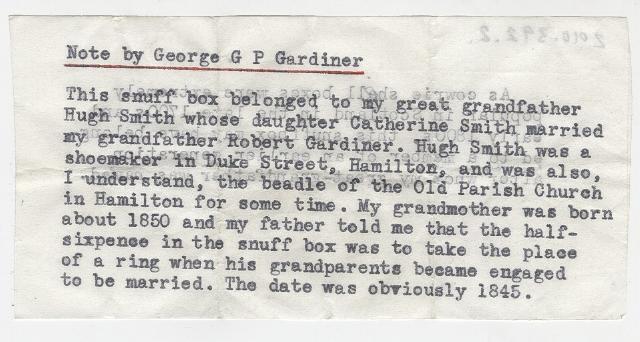 Note by George G P Gardiner
This snuff box belonged to my great grandfather
Hugh Smith whose daughter Catherine Smith married
my grandfather Robert Gardiner. Hugh Smith was a
shoemaker in Duke Street, Hamilton, and was also,
I understand, the beadle of the Old Parish Church
in Hamilton for some time. My grandmother was born
about 1850 and my father told me that the half-
sixpence in the snuff box was to take the place
of a ring when his grandparents became engaged
to be married. The date was obviously 1845.